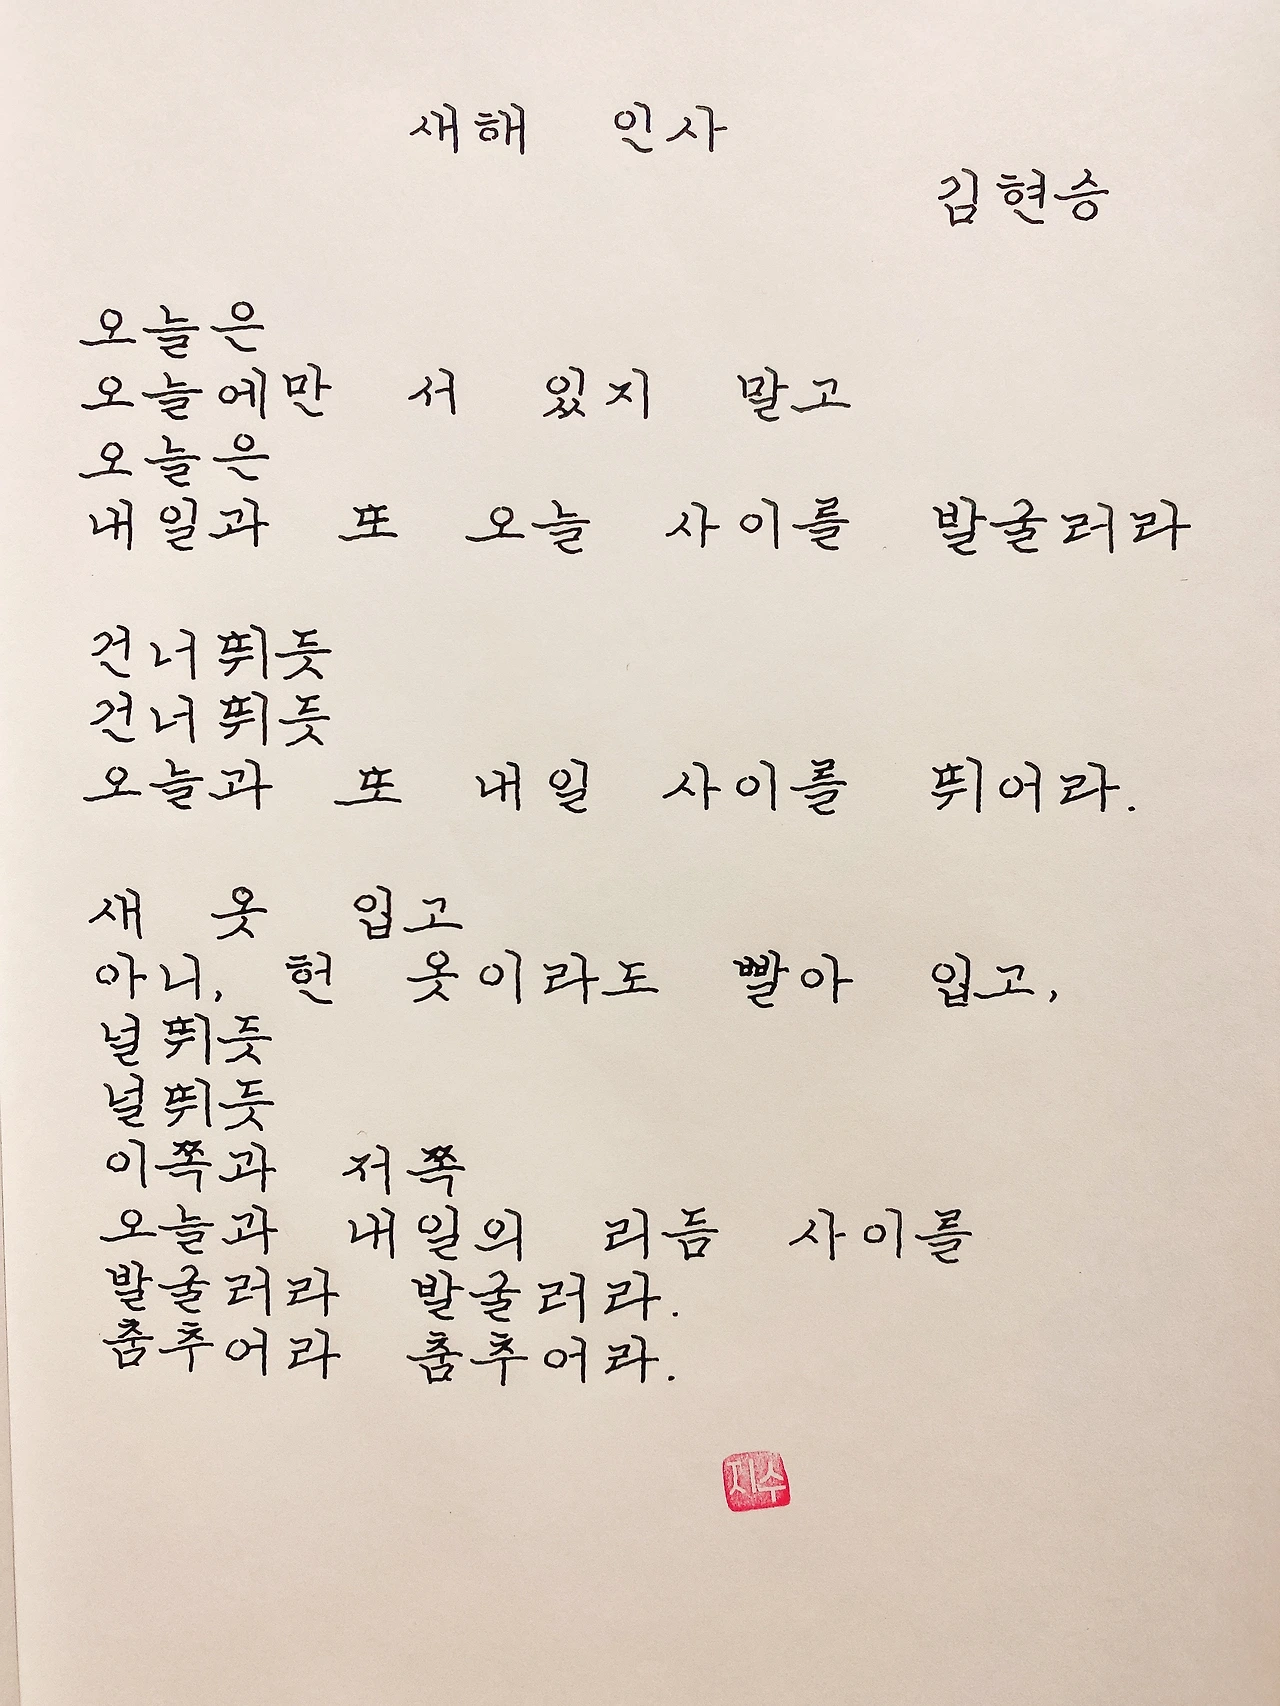 새해 인사
김현승
오늘은
오늘에만 서 있지 말고
오늘은
내일과 또 오늘 사이를 발굴러라
건너뛰듯
건너뛰듯
오늘과 또 내일 사이를 뛰어라.
새 옷 입고
아니, 헌 옷이라도 빨아 입고,
널뛰듯
널뛰듯
이쪽과 저쪽
오늘과 내일의 리듬 사이를
발굴러라 발굴러라.
춤추어라 춤추어라.
지수